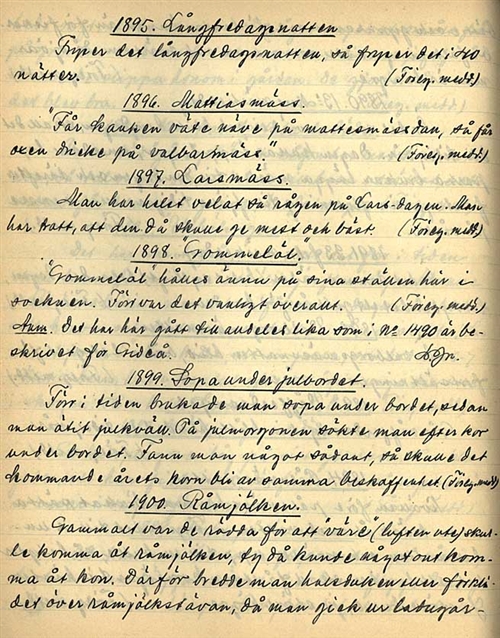 1895. Långfredagsnatten
Fryser det långfredagsnatten, så fryser det i 40
nätter. (Föreg. medd.)
1896. Mattiasmäss.
"Får hanken väte näve på mattesmässdan, så får
oxen dricke på valbarmäss." (Föreg. medd.)
1897. Larsmäss.
Man har helst velat så rågen på Lars-dagen. Man
har trott, att den då skulle ge mest och bäst. (Föreg. medd.)
1898. "Grommelöl."
"Grommelöl" hålles ännu på sina ställen här i
socknen. Förr var det vanligt överallt. (Föreg. medd.)
Anm. Det har här gått till alldeles lika som i No 1490 är be-
skrivet för Gideå.
1899. Sopa under julbordet.
Förr i tiden brukade man sopa under bordet, sedan
man ätit julkväll. På julmorgonen sökte man efter kor
under bordet. Fann man något sådant, så skulle det
kommande årets korn bli av samma beskaffenhet (Föreg. medd.)
1900. Råmjölken.
Grammalt var de rädda för att "väré" (luften ute) skul-
le komma åt råmjölken, ty då kunde något ont kom-
ma åt kon. Därför bredde man halsduken eller förklä-
det över råmjölkstävan, då man gick ur ladugår-